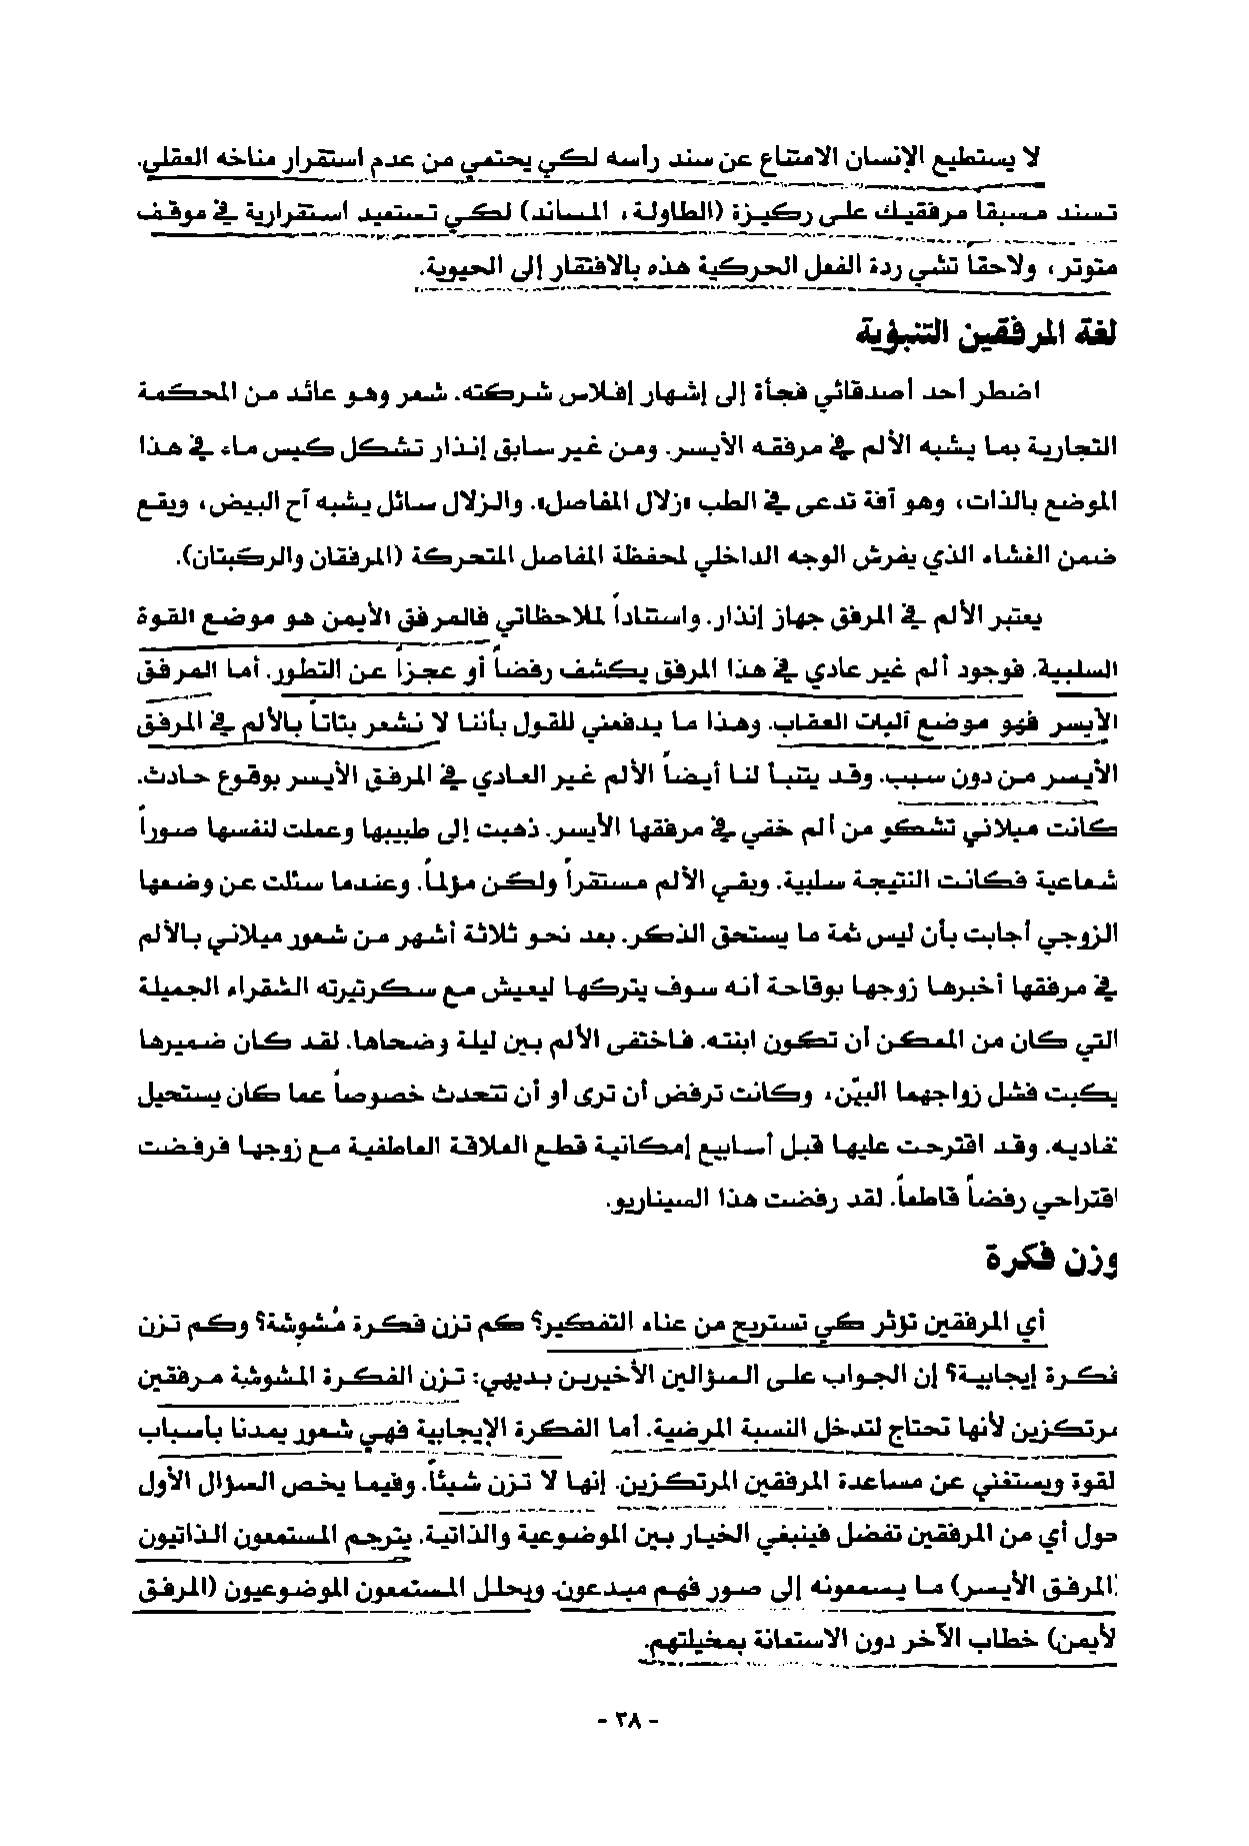 لا يستطيع الإنسان الامتناع عن سند رأسه لكي يحتمي من عدم استقرار مناخه العقلي.
تسند مسبقا مرفقيك على ركيزة (الطاولة، المساند) لكي تستعيد استقرارية في موقف
متوتر، ولاحقاً تشي ردة الفعل الحركية هذه بالافتقار إلى الحيوية.
لغة المرفقين التنبؤية
اضطر أحد أصدقائي فجأة إلى إشهار إفلاس شركته. شعر وهو عائد من المحكمة
التجارية بما يشبه الألم في مرفقه الأيسر. ومن غير سابق إنذار تشكل كيس ماء في هذا
الموضع بالذات، وهو آفة تدعى في الطب «زلال المفاصل». والزلال سائل يشبه آح البيض، ويقع
ضمن الغشاء الذي يفرش الوجه الداخلي لمحفظة المفاصل المتحركة (المرفقان والركبتان).
يعتبر الألم في المرفق جهاز إنذار. واستناداً لملاحظاتي فالمرفق الأيمن هو موضع القوة
السلبية. فوجود ألم غير عادي في هذا المرفق يكشف رفضاً أو عجزاً عن التطور. أما المرفق
الأيسر فهو موضع آليات العقاب. وهذا ما يدفعني للقول بأننا لا نشعر بتاتاً بالألم في المرفق
الأيسر من دون سبب. وقد يتنبأ لنا أيضاً الألم غير العادي في المرفق الأيسر بوقوع حادث.
كانت ميلاني تشكو من ألم خفي في مرفقها الأيسر. ذهبت إلى طبيبها وعملت لنفسها صوراً
شعاعية فكانت النتيجة سلبية. وبقي الألم مستقراً ولكن مؤلماً. وعندما سئلت عن وضعها
الزوجي أجابت بأن ليس ثمة ما يستحق الذكر. بعد نحو ثلاثة أشهر من شعور ميلاني بالألم
في مرفقها أخبرها زوجها بوقاحة أنه سوف يتركها ليعيش مع سكرتيرته الشقراء الجميلة
التي كان من الممكن أن تكون ابنته. فاختفى الألم بين ليلة وضحاها. لقد كان ضميرها
يكبت فشل زواجهما البيّن، وكانت ترفض أن ترى أو أن تتحدث خصوصاً عما كان يستحيل
تفاديه. وقد اقترحت عليها قبل أسابيع إمكانية قطع العلاقة العاطفية مع زوجها فرفضت
اقتراحي رفضاً قاطعاً. لقد رفضت هذا السيناريو.
وزن فكرة
أي المرفقين تؤثر كي تستريح من عناء التفكير؟ كم تزن فكرة مُشوشة؟ وكم تزن
فكرة إيجابية؟ إن الجواب على السؤالين الأخيرين بديهي: تزن الفكرة المشوشة مرفقين
مرتكزين لأنها تحتاج لتدخل النسبة المرضية. أما الفكرة الإيجابية فهي شعور يمدنا بأسباب
لقوة ويستغني عن مساعدة المرفقين المرتكزين. إنها لا تزن شيئاً. وفيما يخص السؤال الأول
حول أي من المرفقين تفضل فينبغي الخيار بين الموضوعية والذاتية. يترجم المستمعون الذاتيون
(المرفق الأيسر) ما يسمعونه إلى صور فهم مبدعون. ويحلل المستمعون الموضوعيون (المرفق
لأيمن) خطاب الآخر دون الاستعانة بمخيلتهم.
- ٣٨ -